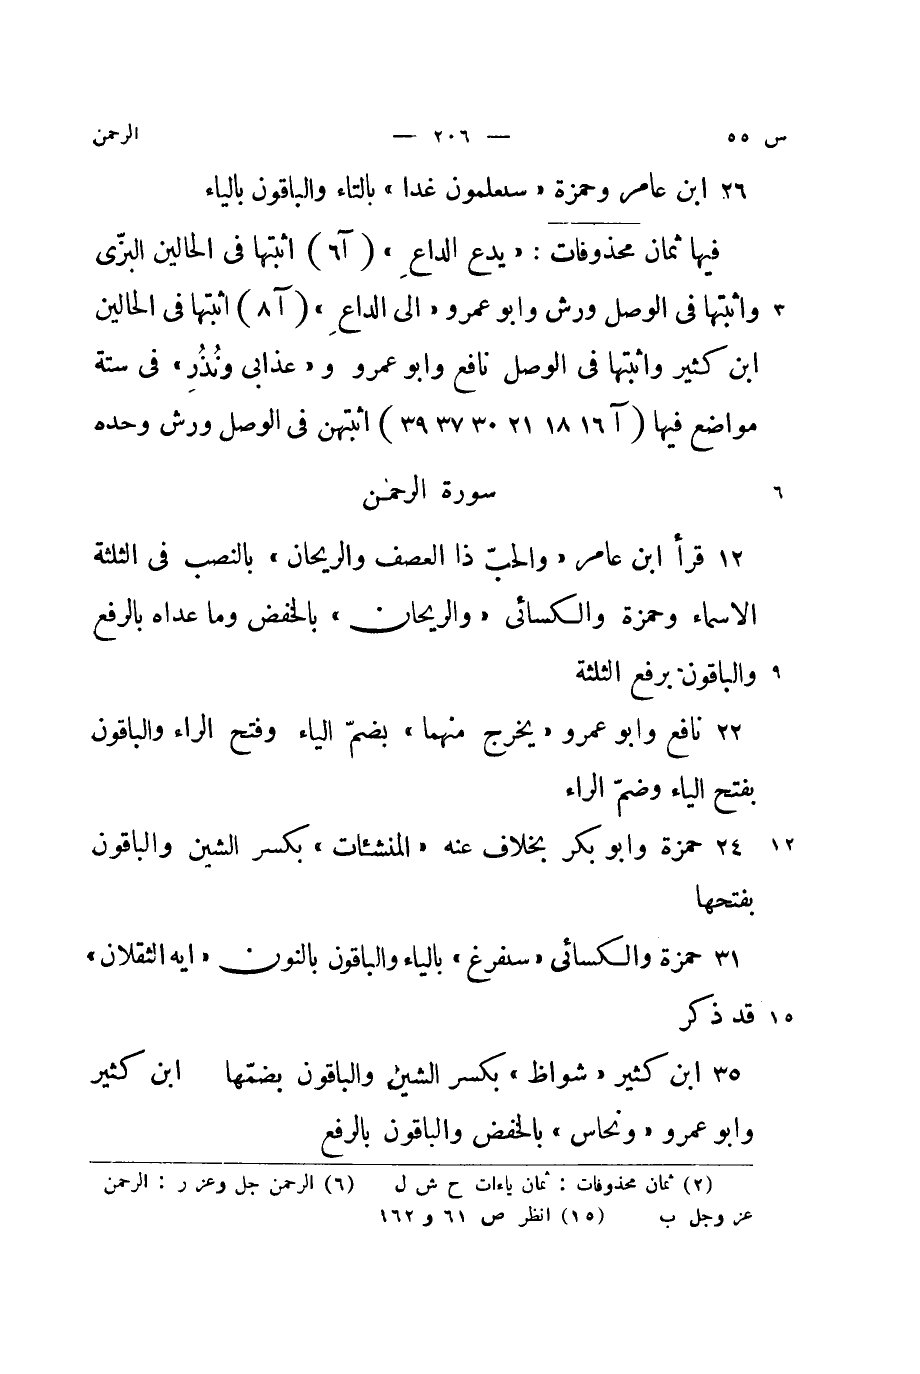 س ٥٥ — ٢٠٦ — الرحمن
٢٦ ابن عامر وحمزة « ستعلمون غدا » بالتاء والباقون بالياء
فيها ثمان محذوفات : « يدع الداعِ » ( آ٦ ) اثبتها فى الحالين البزّى
٣ واثبتها فى الوصل ورش وابو عمرو « الى الداعِ » ( آ ٨ ) اثبتها فى الحالين
ابن كثير واثبتها فى الوصل نافع وابو عمرو و « عذابى ونُذُرِ » فى ستة
مواضع فيها ( آ ١٦ ١٨ ٢١ ٣٠ ٣٧ ٣٩ ) اثبتهن فى الوصل ورش وحده
٦ سورة الرحمٰن
١٢ قرأ ابن عامر « والحبّ ذا العصف والريحان » بالنصب فى الثلثة
الاسماء وحمزة والكسائى « والريحان » بالخفض وما عداه بالرفع
٩ والباقون برفع الثلثة
٢٢ نافع وابو عمرو « يخرج منهما » بضمّ الياء وفتح الراء والباقون
بفتح الياء وضمّ الراء
١٢ ٢٤ حمزة وابو بكر بخلاف عنه « المنشئات » بكسر الشين والباقون
بفتحها
٣١ حمزة والكسائى « سنفرغ » بالياء والباقون بالنون « ايه الثقلان »
١٥ قد ذكر
٣٥ ابن كثير « شواظ » بكسر الشين والباقون بضمّها ابن كثير
وابو عمرو « ونحاس » بالخفض والباقون بالرفع
(٢) ثمان محذوفات : ثمان ياءات ح ش ل (٦) الرحمن جل وعز ر : الرحمن
عز وجل ب (١٥) انظر ص ٦١ و ١٦٢